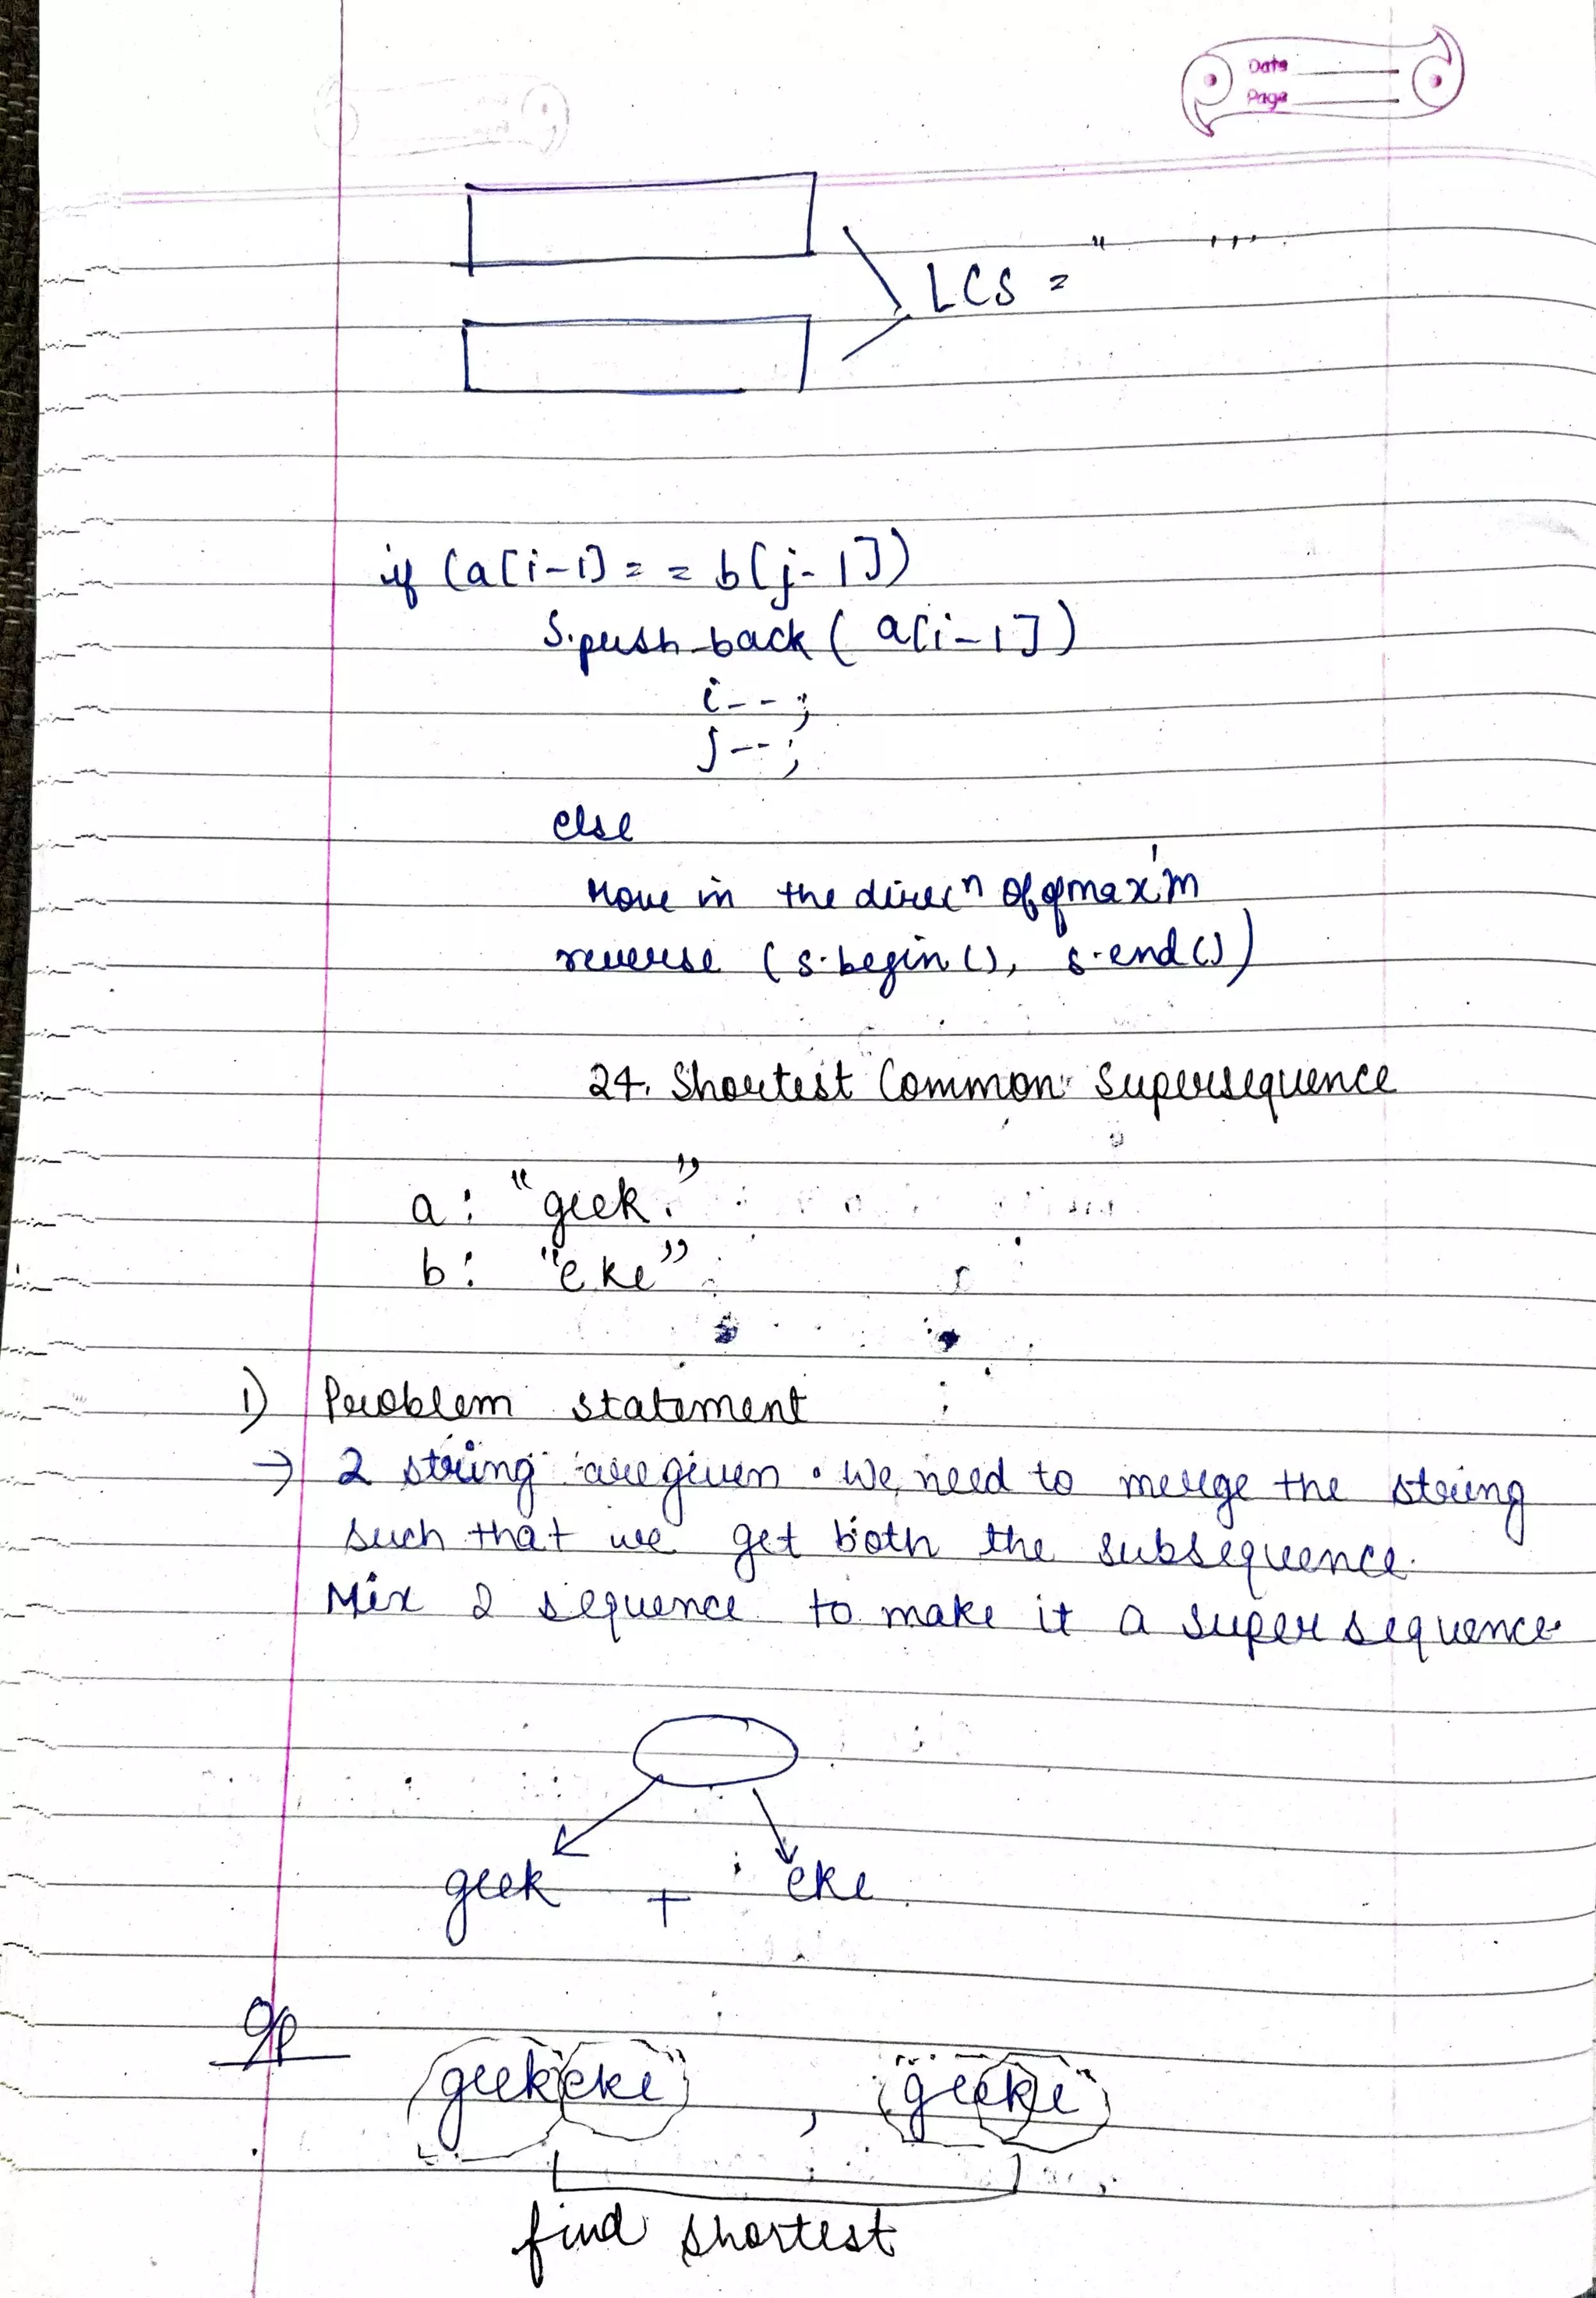 Date
Page
LCS = " "
if (a[i-1] == b[j-1])
s.push_back (a[i-1])
i--;
j--;
else
Move in the direcⁿ of max'm
reverse (s.begin(), s.end())
24. Shortest Common Supersequence
a: "geek"
b: "eke"
1) Problem statement
→ 2 string are given. We need to merge the string
such that we get both the subsequence.
Mix 2 sequence to make it a super sequence
geek + eke
O/P
"geekeke", "geeke"
find shortest